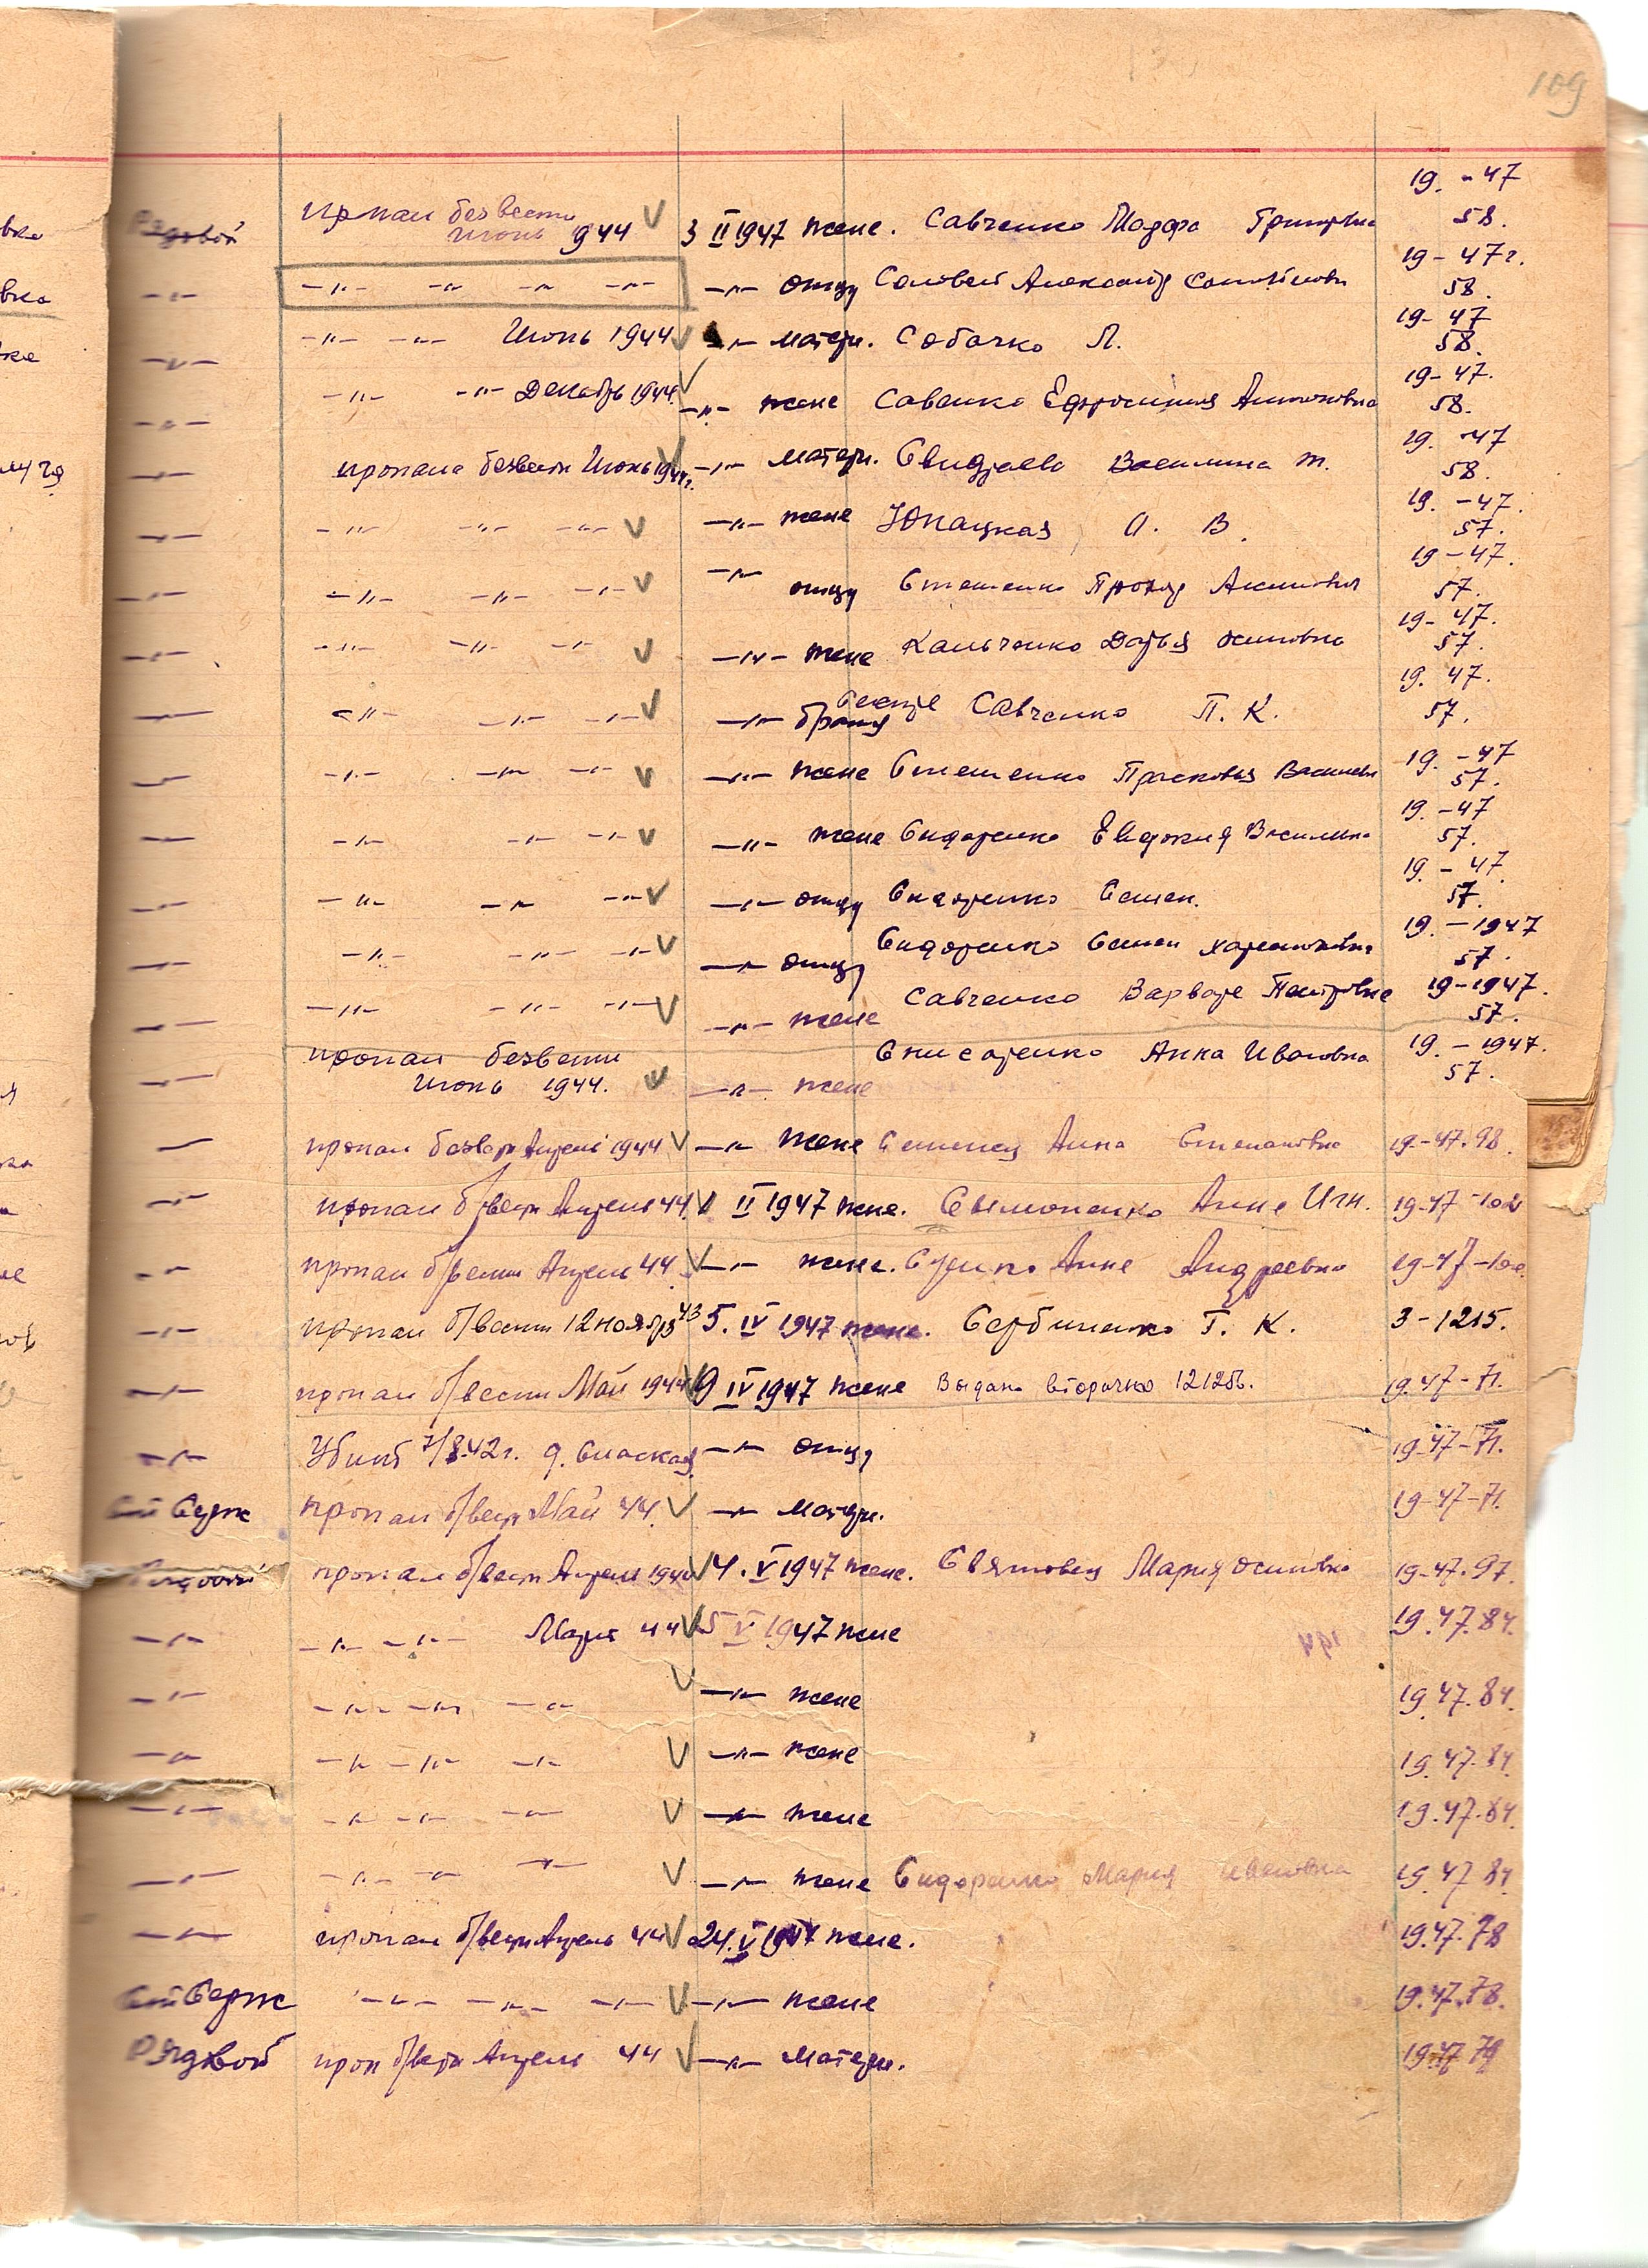 109
19. - 47
Рядовой пропал без вести V 58.
июнь 1944 3 II 1947 жене. Савченко Григорьевна
19 - 47 г.
-"- -"- -"- -"- -"- -"- отцу Соловей Александр 58.
19 - 47
-"- -"- -"- Июнь 1944 V -"- матери. Собачко Л. 58.
19 - 47.
-"- -"- -"- Декабрь 1944 V -"- жене Савенко Ефросиния Антоновна 58.
19. - 47
-"- пропала без вести Июнь 1944 г. V -"- матери. Василина Т. 58.
19. - 47.
-"- -"- -"- -"- V -"- жене О. В. 57.
19 - 47.
-"- -"- -"- -"- V -"- отцу Стешенко Прохор Акимович 57.
19 - 47.
-"- -"- -"- -"- V -"- жене Кальченко Дарья Осиповна 57.
19. 47.
-"- -"- -"- -"- V -"- брату сестре Савченко П. К. 57.
19. - 47
-"- -"- -"- -"- V -"- жене Стешенко Прасковья 57.
19. - 47
-"- -"- -"- -"- V -"- жене Сидоренко Евдокия 57.
19. - 47.
-"- -"- -"- -"- V -"- отцу Сидоренко Семен. 57.
19. - 1947
-"- -"- -"- -"- V -"- отцу Сидоренко Семен 57.
19 - 1947.
-"- -"- -"- -"- V -"- жене Савченко Варваре Петровне 57.
19. - 1947.
-"- пропал без вести Снисаренко Анна Ивановна 57.
Июнь 1944. V -"- жене
-"- пропал без вести Апрель 1944 V -"- жене Анна Степановна 19-47.98.
-"- пропал б/вести Апрель 44. V II 1947 жене. Симоненко Анне Игн. 19-47-102
-"- пропал б/вести Апрель 44. V -"- жене. Анне Андреевне 19-47-102.
-"- пропал б/вести 12 ноября 43 5. IV 1947 жене. Сербиненко Г. К. 3-1215.
-"- пропал б/вести Май 1944 V 9 IV 1947 жене Выдано вторично 121256. 19.47-71.
-"- Убит 7/8.42 г. д. Спаская -"- отцу 19-47-71.
Серж пропал б/вести Май 44. V -"- матери. 19-47-71.
Рядовой пропал б/вести Апрель 1944 V 4. V 1947 жене. Святовец Мария Осиповна 19-47.97.
-"- -"- -"- Март 44 V 5 V 1947 жене 19.47.84.
-"- -"- -"- -"- V -"- жене 19.47.84.
-"- -"- -"- -"- V -"- жене 19.47.84.
-"- -"- -"- -"- V -"- жене 19.47.84.
-"- -"- -"- -"- V -"- жене Сидоренко Мария Ивановна 19.47 84.
-"- пропал б/вести Апрель 44 V 24. V 1947 жене. 19.47.78
Серж -"- -"- -"- V -"- жене 19.47.78.
Рядовой проп б/вести Апрель 44 V -"- Матери. 19.47 79